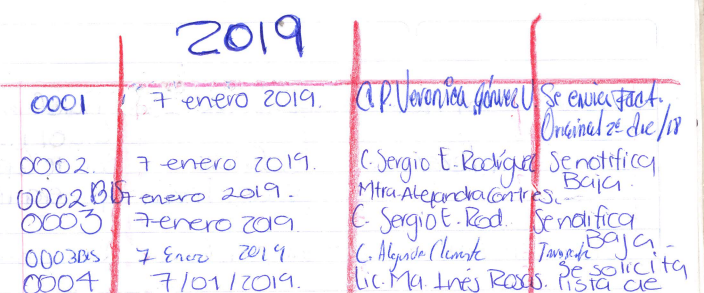 2019
0001 7 enero 2019. C.P. Veronica Gómez U Se envia Fact.
Original dic/18
0002. 7 enero 2019. C. Sergio E. Rodriguez Se notifica
Baja.
0002 BIS 7 enero 2019. Mtra. Alejandra Contreras.
0003 7 enero 2019. C. Sergio E. Rod. Se notifica
Baja.
0003 BIS 7 Enero 2019 C. Alejandra Clemente
0004 7/01/2019. Lic. Ma. Inés Rosas. Se solicita
lista de